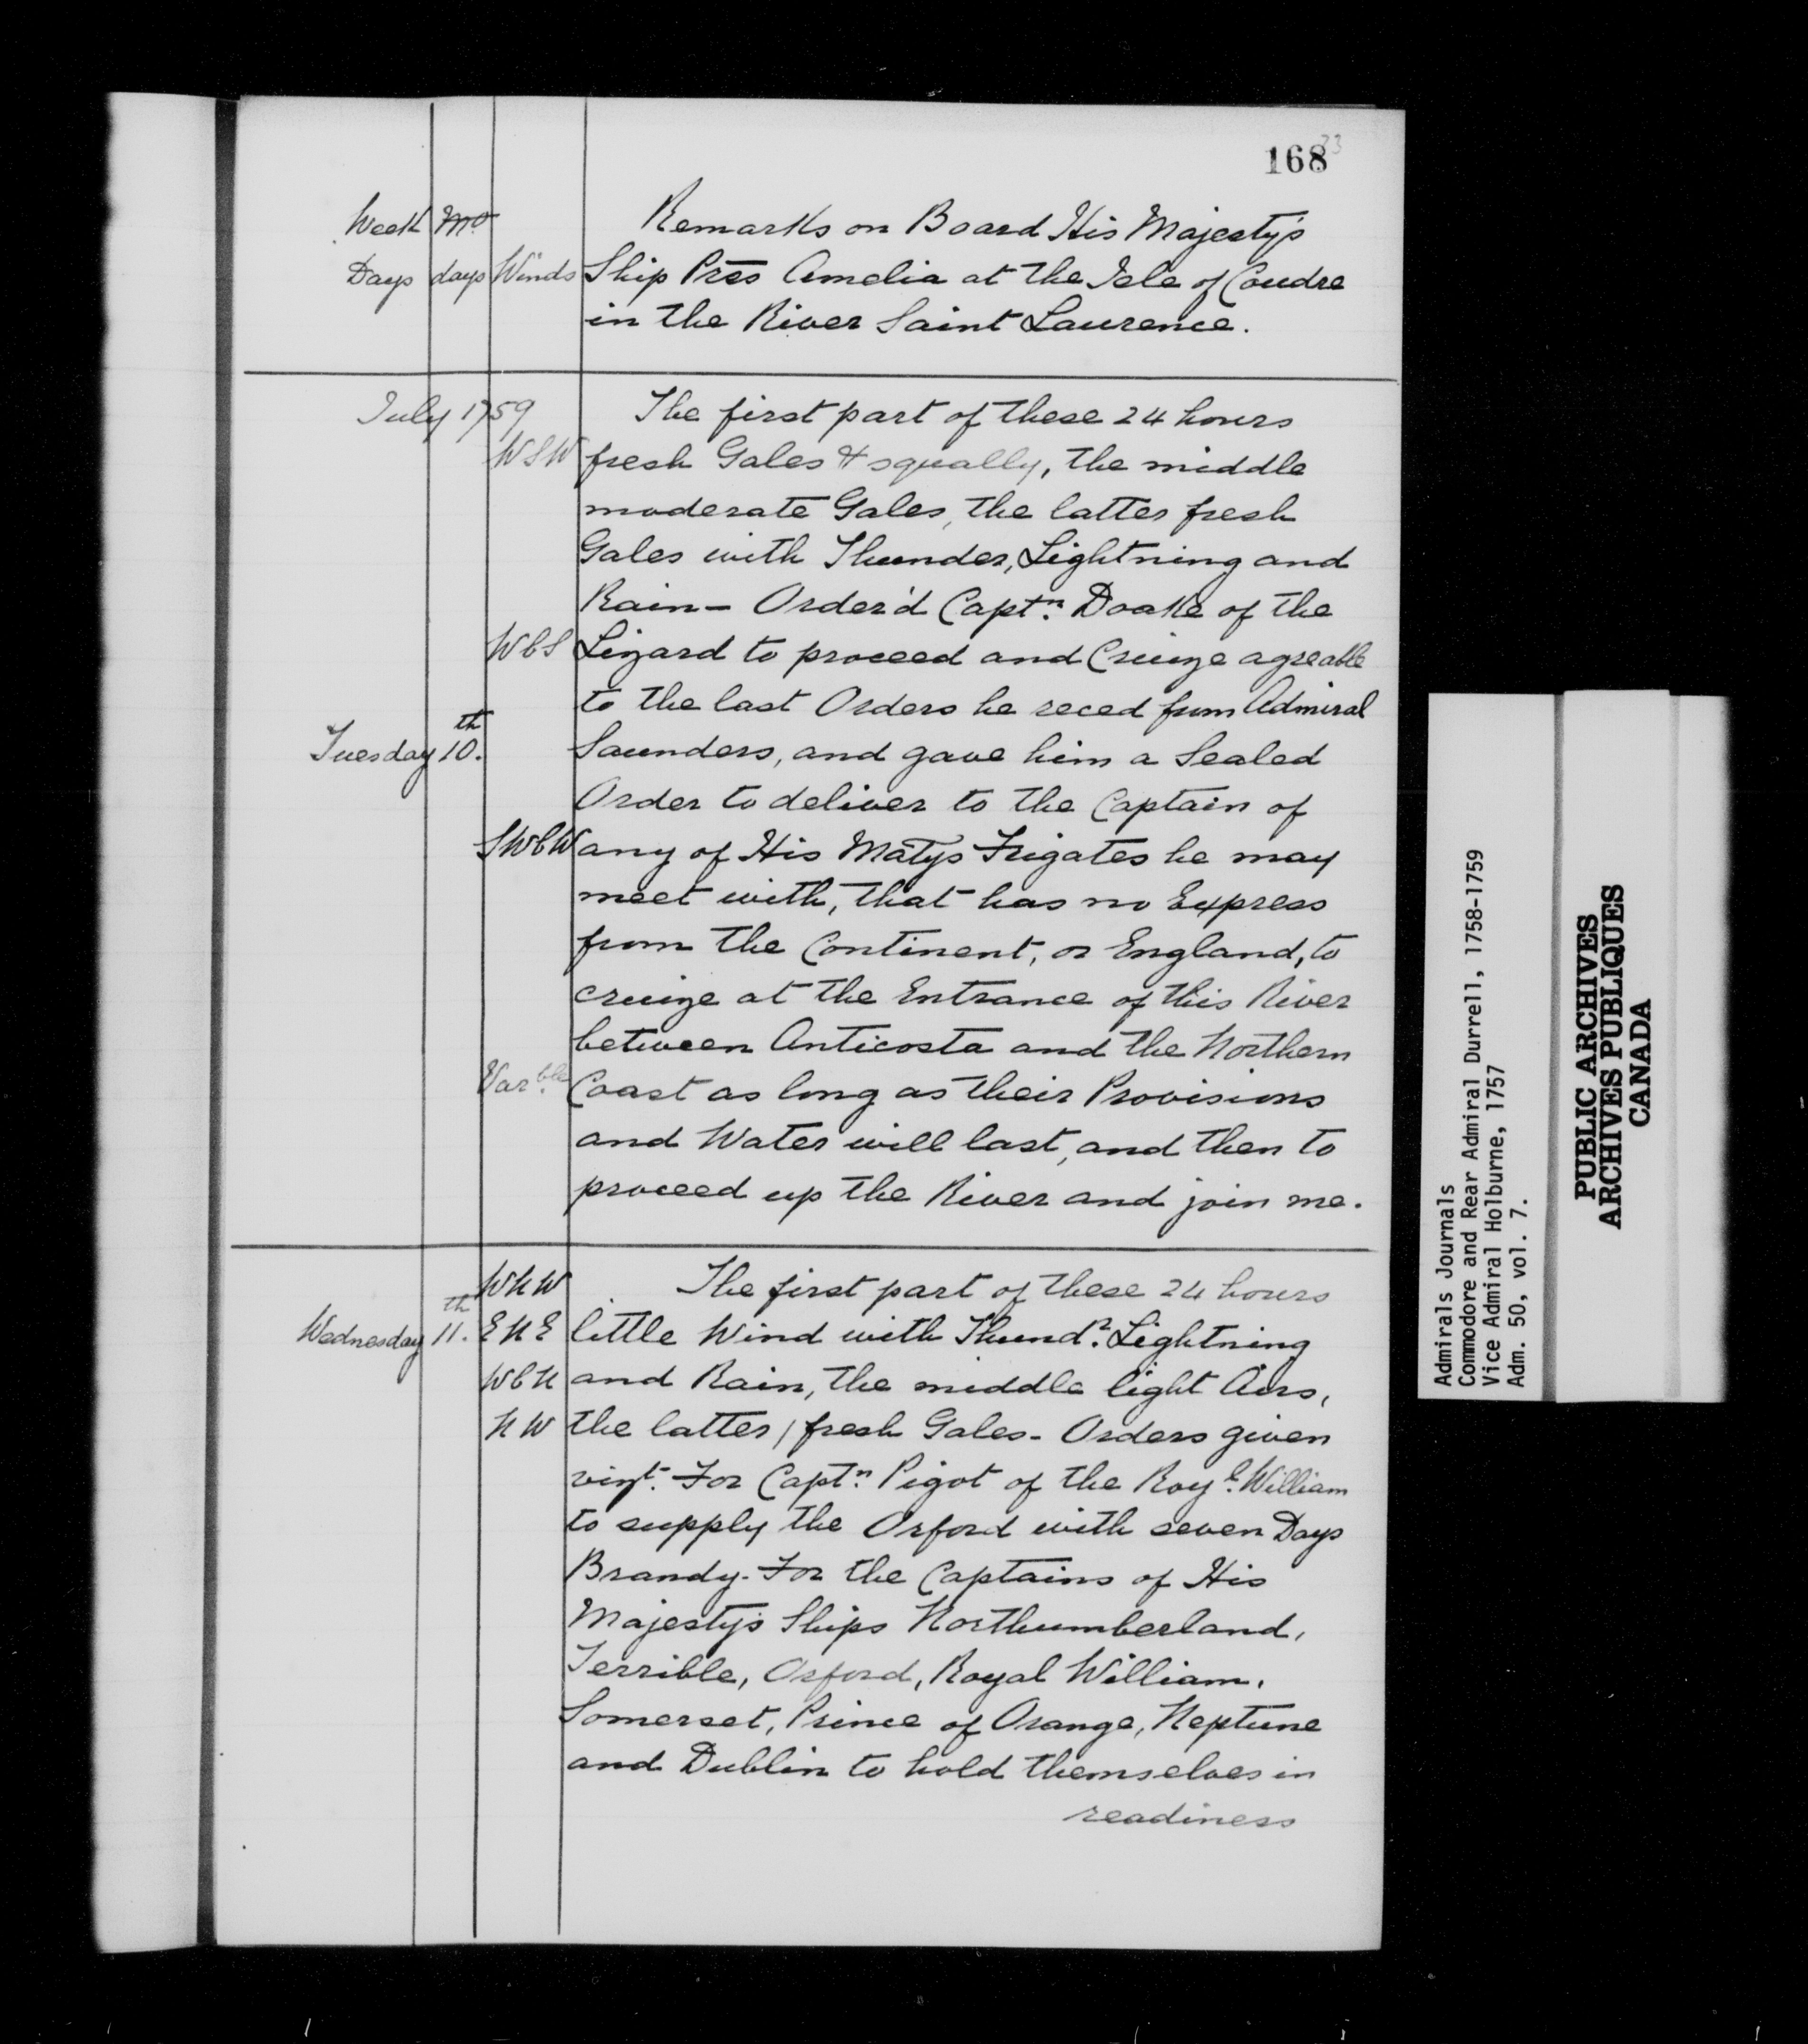 168
Week Mo
Days days Winds
Remarks on Board His Majesty's
Ship Pres Amelia at the Isle of Coudre
in the River Saint Laurence.
July 1759
The first part of these 24 hours
WSW fresh Gales & squally, the middle
moderate Gales, the latter fresh
Gales with Thunder, Lightning and
Rain - Order'd Captn. Doake of the
WbS Lizard to proceed and Cruize agreable
to the last Orders he reced from Admiral
Tuesday 10th. Saunders, and gave him a Sealed
Order to deliver to the Captain of
SWbW any of His Matys Frigates he may
meet with, that has no Express
from the Continent, or England, to
cruize at the Entrance of this River
between Anticosta and the Northern
Varble. Coast as long as their Provisions
and Water will last, and then to
proceed up the River and join me.
WNW The first part of these 24 hours
Wednesday 11th. ENE little Wind with Thundr. Lightning
WbN and Rain, the middle light Airs,
NW the latter / fresh Gales - Orders given
vizt. For Captn. Pigot of the Royl. William
to supply the Orford with seven Days
Brandy - For the Captains of His
Majesty's Ships Northumberland,
Terrible, Orford, Royal William,
Somerset, Prince of Orange, Neptune
and Dublin to hold themselves in
readiness
Admirals Journals
Commodore and Rear Admiral Durrell, 1758-1759
Vice Admiral Holburne, 1757
Adm. 50, vol. 7.
PUBLIC ARCHIVES
ARCHIVES PUBLIQUES
CANADA